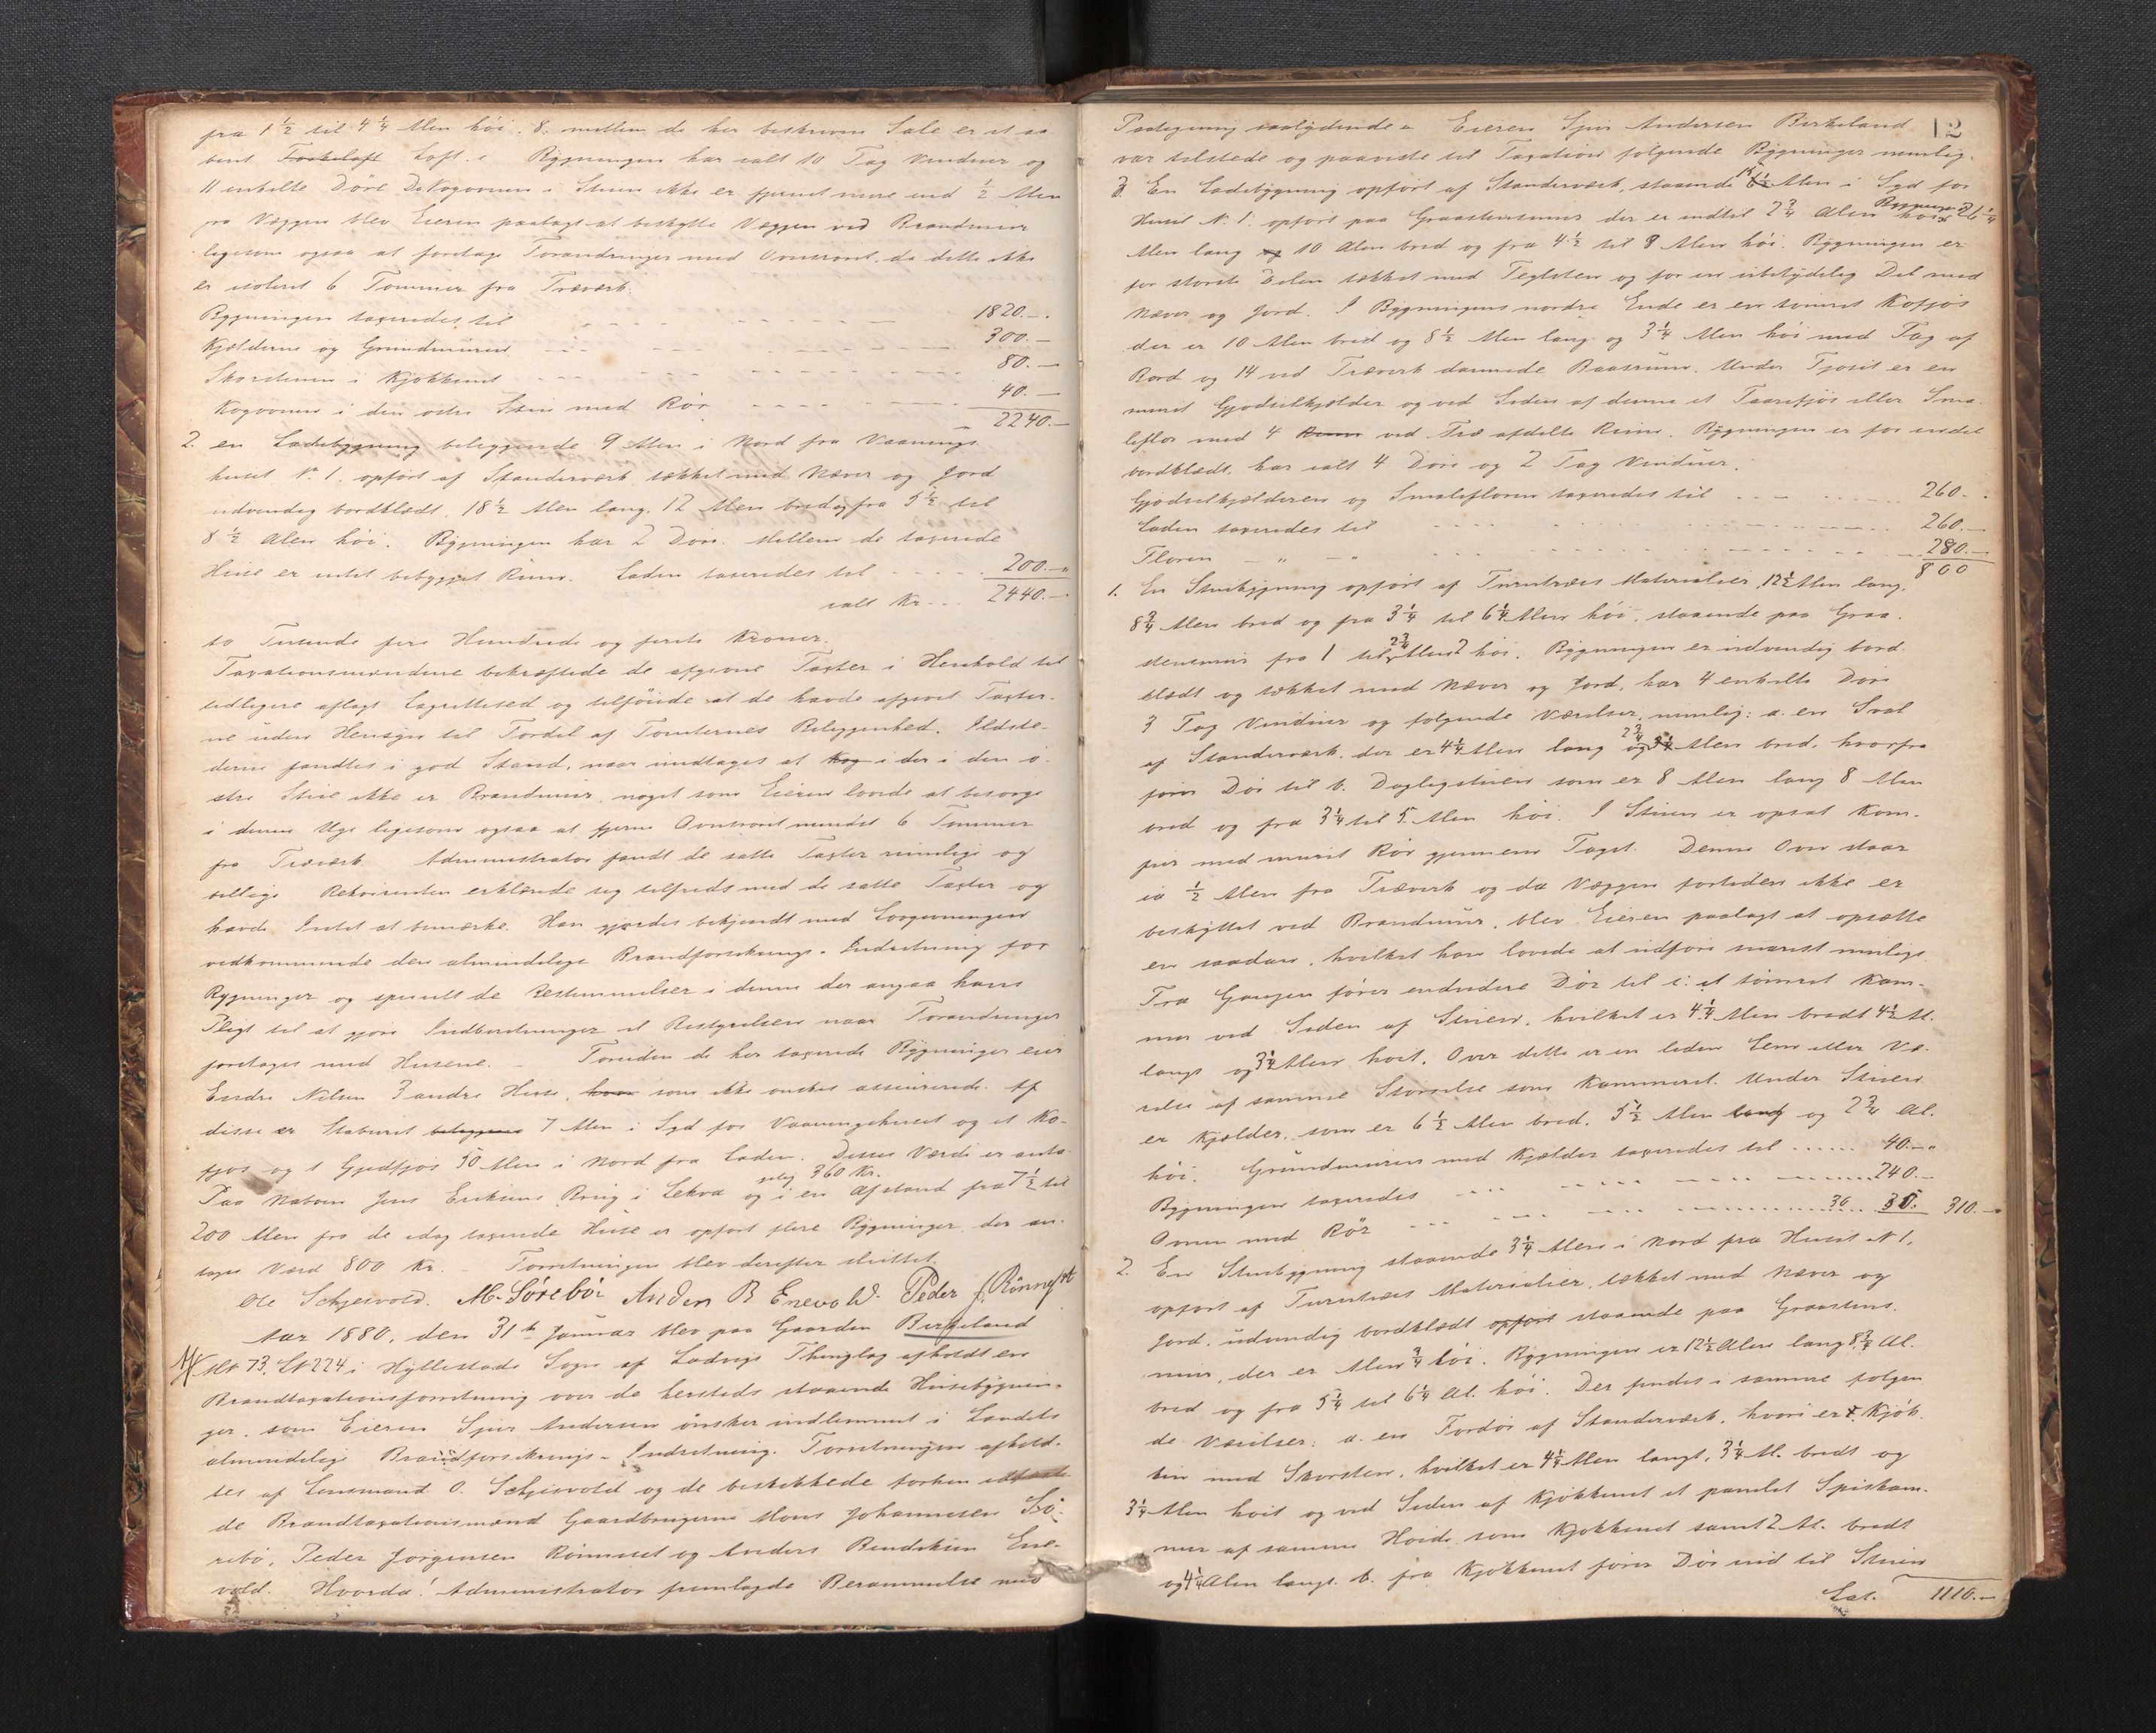 fra 1 1/2 til 4 1/4 Alen höi. 8. mellem de her beskrevne Sale er et aa
bent Loft. Bygningen har ialt 10 Fag Vinduer og
11 enkelte Döre. Da Kogovnen i Stuen ikke er fjernet mere end 1/2 Alen
fra Væggen blev Eieren paalagt at beskytte Væggen ved Brandmuur
ligesom ogsaa at foretage Forandringer med Ovnsröret, da dette ikke
er isoleret 6 Tommer fra Træværk.
Bygningen taxeredes til 1820.-
Kjælderne og Grundmuren 300.-
Skorstenen i Kjökkenet 80.-
Kogovnen i den östre Stue med Rör 40.-
2240.-
2. en Ladebygning beliggende 9 Alen i Nord fra Vaanings
huset No 1, opfört af Standerværk tækket med Næver og Jord
udvendig bordklædt, 18 1/2 Alen lang, 12 Alen bred og fra 5 1/2 til
8 1/2 Alen höi. Bygningen har 2 Döre. Mellem de taxerede
Huse er intet bebygget Rum. Laden taxeredes til 200.-
ialt Kr. 2440.-
to Tusende fire Hundrede og firti Kroner.
Taxationsmændene bekræftede de afgivne Taxter i Henhold til
tidligere aflagt Lagrettesed og tilföiede at de havde afgivet Taxter-
ne uden Hensyn til Fordel af Tomternes Beliggenhed. Ildste-
derne fandtes i god Stand, naar undtages at der i den ö-
stre Stue ikke er Brandmuur, noget som Eieren lovede at besörge
i denne Uge ligesom ogsaa at fjerne Ovnsröret mindst 6 Tommer
fra Træværk. Administrator fandt de satte Taxter rimelige og
billige. Rekvirenten erklærede sig tilfreds med de satte Taxter og
havde Intet at bemærke. Han gjordes bekjendt med Lovgivningen
vedkommende den almindelige Brandforsikrings-Indretning for
Bygninger og specielt de Bestemmelser i denne der angaa hans
Pligt til at gjöre Indberetninger til Bestyrelsen naar Forandringer
foretages med Husene. - Foruden de her taxerede Bygninger eier
Endre Nilsen 3 andre Huse, som ikke önskes assurerede. Af
disse er Staburet 7 Alen i Syd for Vaaningshuset og et Ko-
fjös og 1 Gjedfjös 50 Alen i Nord fra Laden. Disses Værdi er anta-
gelig 360 Kr.
Paa Naboen Jens Eriksens Brug i Lekva og i en Afstand fra 7 1/2 til
200 Alen fra de idag taxerede Huse er opfört flere Bygninger, der an-
tages Værd 800 Kr. - Forretningen blev derefter sluttet.
Ole Schjesvold. M. Sörebö Anders B Enevold. Peder J. Rönnest
Aar 1880, den 31te Januar blev paa Gaarden Birkeland
M.No 73, L.No 224 i Hyllestads Sogn af Ladvigs Thinglag afholdt en
Brandtaxationsforretning over de hersteds staaende Huusbygnin-
ger, som Eieren Sjur Andersen önsker indlemmet i Landets
almindelige Brandforsikrings-Indretning. Forretningen afhold-
tes af Lensmand O. Schjesvold og de beskikkede
de Brandtaxationsmænd Gaardbrugerne Mons Johannesen Sö-
rebö, Peder Jörgensen Rönneset og Anders Bendiksen Ene-
vold. Hvorda! Administrator fremlagde Berammelse med
12
Paategning saalydende " Eieren Sjur Andersen Birkeland
var tilstede og paaviste til Taxation fölgende Bygninger nemlig.
3. En Ladebygning opfört af Standerværk, staaende Alen i Syd for
Huset No 1. opfört paa Graastensmuur der er indtil 2 3/4 Alen höi. Bygningen 26 1/4
Alen lang 10 Alen bred og fra 4 1/2 til 8 Alen höi. Bygningen er
for störste Delen tækket med Teglsten og for en ubetydelig Del med
Næver og Jord. I Bygningens nordre Ende er en tömret Kofjös
der er 10 Alen bred og 8 1/2 Alen lang og 3 1/4 Alen höi med Tag af
Bord og 14 ved Træværk dannede Baasrum. Under Fjöset er en
muret Gjödselkjælder og ved Siden af denne et Faarefjös eller Sma-
leflor med 4 ved Træ afdelte Rum. Bygningen er for endel
bordklædt, har ialt 4 Döre og 2 Fag Vinduer.
Gjödselkjælderen og Smalefloren taxeredes til 260-
Laden taxeredes til 260.-
Floren " - " 280.-
800
1. En Stuebygning opfört af Furutræes Materialier, 12 1/2 Alen lang,
8 3/4 Alen bred og fra 3 1/4 til 6 1/4 Alen höi, staaende paa Graa-
stensmuur fra 1 til 2 3/4 Alen höi. Bygningen er udvendig bord-
klædt og tækket med Næver og Jord, har 4 enkelte Döre
3 Fag Vinduer og fölgende Værelser, nemlig: a. en Sval
af Standerværk, der er 4 1/4 Alen lang og 2 3/4 Alen bred, hvorfra
förer Dör til b. Dagligstuen som er 8 Alen lang 8 Alen
bred og fra 3 1/4 til 5 Alen höi. I Stuen er opsat Kom-
fur med muret Rör gjennem Taget. Denne Ovn staar
ca 1/2 Alen fra Træværk og da Væggen fortiden ikke er
beskyttet ved Brandmuur, blev Eieren paalagt at opsætte
en saadan, hvilket han lovede at udföre snarest muligt.
Fra Gangen förer endvidere Dör til c. et tömret Kam-
mer ved Siden af Stuen, hvilket er 4 1/4 Alen bredt 4 1/2 Al.
langt og 3 1/4 Alen höit. Over dette er en liden Lem eller Væ-
relse af samme Störrelse som Kammeret. Under Stuen
er Kjælder, som er 6 1/2 Alen bred, 5 1/2 Alen lang og 2 3/4 Al.
höi. Grundmuren med Kjælder taxeredes til 40.-
Bygningen taxeredes 240.-
Ovnen med Rör 30 30. 310.-
2. En Stuebygning staaende 3 1/4 Alen i Nord fra Huset No 1,
opfört af Furutræes Materialier, tækket med Næver og
Jord, udvendig bordklædt staaende paa Graastens-
muur, der er Alen 3/4 höi. Bygningen er 12 1/2 Alen lang 8 3/4 Al.
bred og fra 5 1/4 til 6 1/4 Al. höi. Der findes i samme fölgen-
de Værelser: a. en Fordör af Standerværk, hvori er Kjök-
ken med Skorsten, hvilket er 4 1/4 Alen langt, 3 1/4 Al. bredt og
3 1/4 Alen höit og ved Siden af Kjökkenet et panelet Spiskam-
mer af samme Höide som Kjökkenet samt 2 Al. bredt
og 4 1/4 Alen langt. b. fra Kjökkenet förer Dör ind til Stuen
Lat. 1110.-